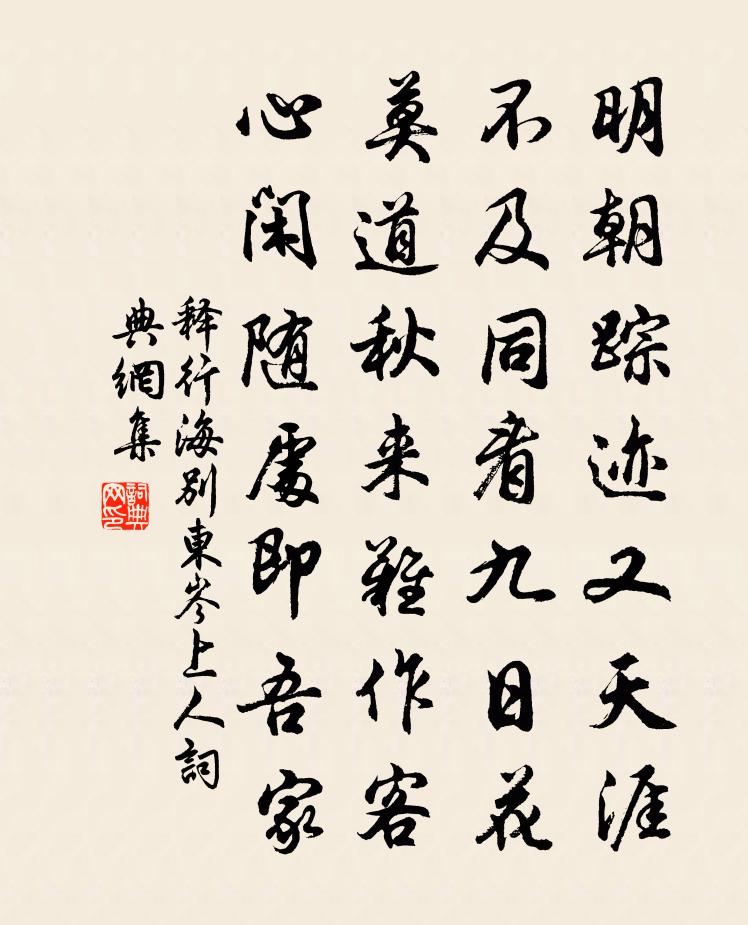 明朝踪迹又天涯
不及同看九日花
莫道秋来難作客
心闲随處即吾家
释行海別東岑上人詞
典網集
詞典
网印